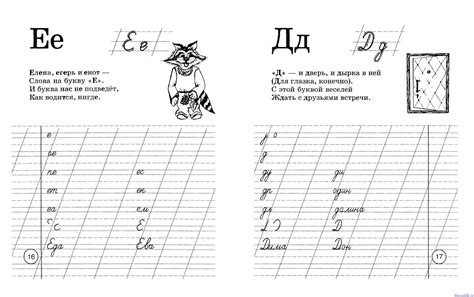 Ее
Ее
Елена, егерь и енот —
Слова на букву «Е».
И буква нас не подведёт,
Как водится, нигде.
е
ве
пе ес
ет ек
ва ем
Е Е
Еда Ева
16
Дд
Дд
«Д» — и дверь, и дырка в ней
(Для глазка, конечно).
С этой буквой веселей
Ждать с друзьями встречи.
д
ду ди
др один
дл долина
Д
Дима Дон
17